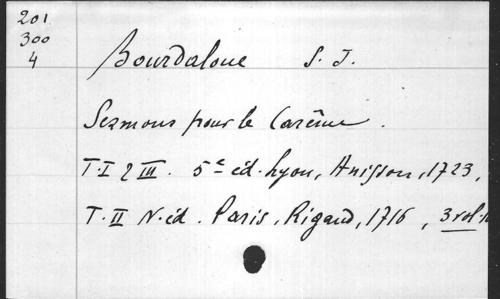 201
300
4
Bourdaloue S. J.
Sermons pour le Carême.
T. I & III. 5e éd. Lyon, Anisson, 1723,
T. II N. éd. Paris, Rigaud, 1716, 3 vol.